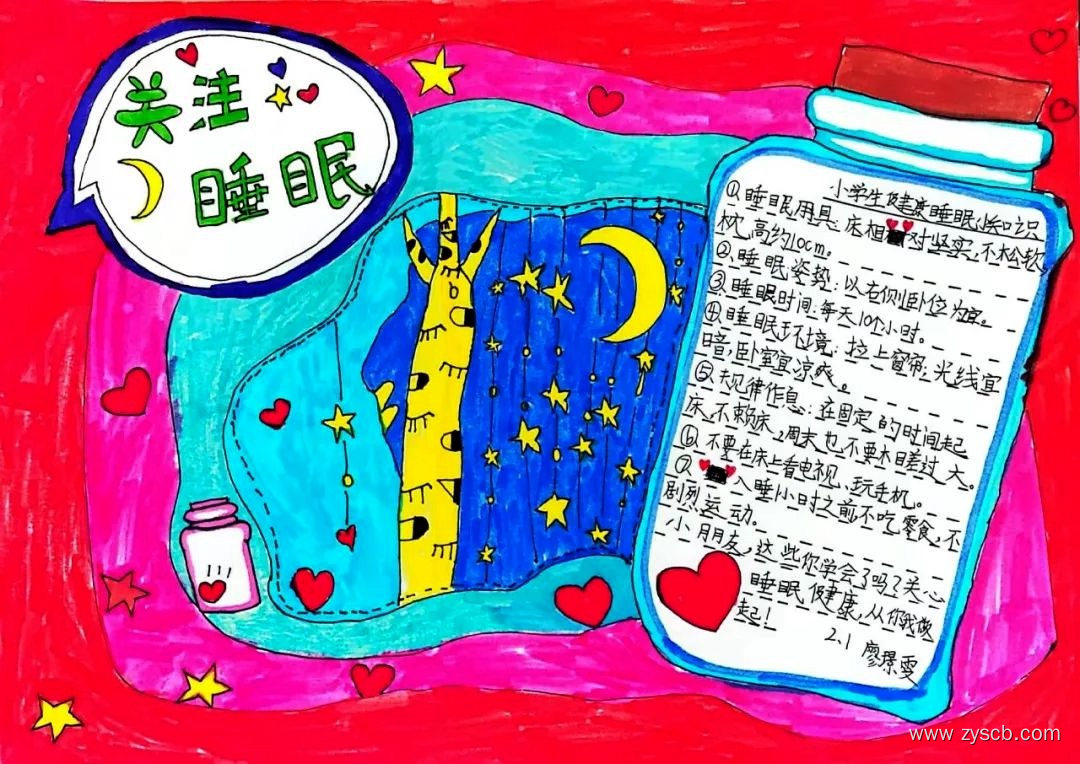 关注
睡眠
小学生健康睡眠小知识
①睡眠用具:床相对坚实,不松软,
枕高约10cm。
②睡眠姿势:以右侧卧位为宜。
③睡眠时间:每天10个小时。
④睡眠环境:拉上窗帘,光线宜
暗,卧室宜凉爽。
⑤规律作息:在固定的时间起
床,不赖床,周末也不要相差过大。
⑥不要在床上看电视、玩手机。
⑦入睡1小时之前不吃零食,不
剧烈运动。
小朋友,这些你学会了吗?关心
睡眠健康,从你我做
起!
2.1 廖璟雯
www.zyscb.com